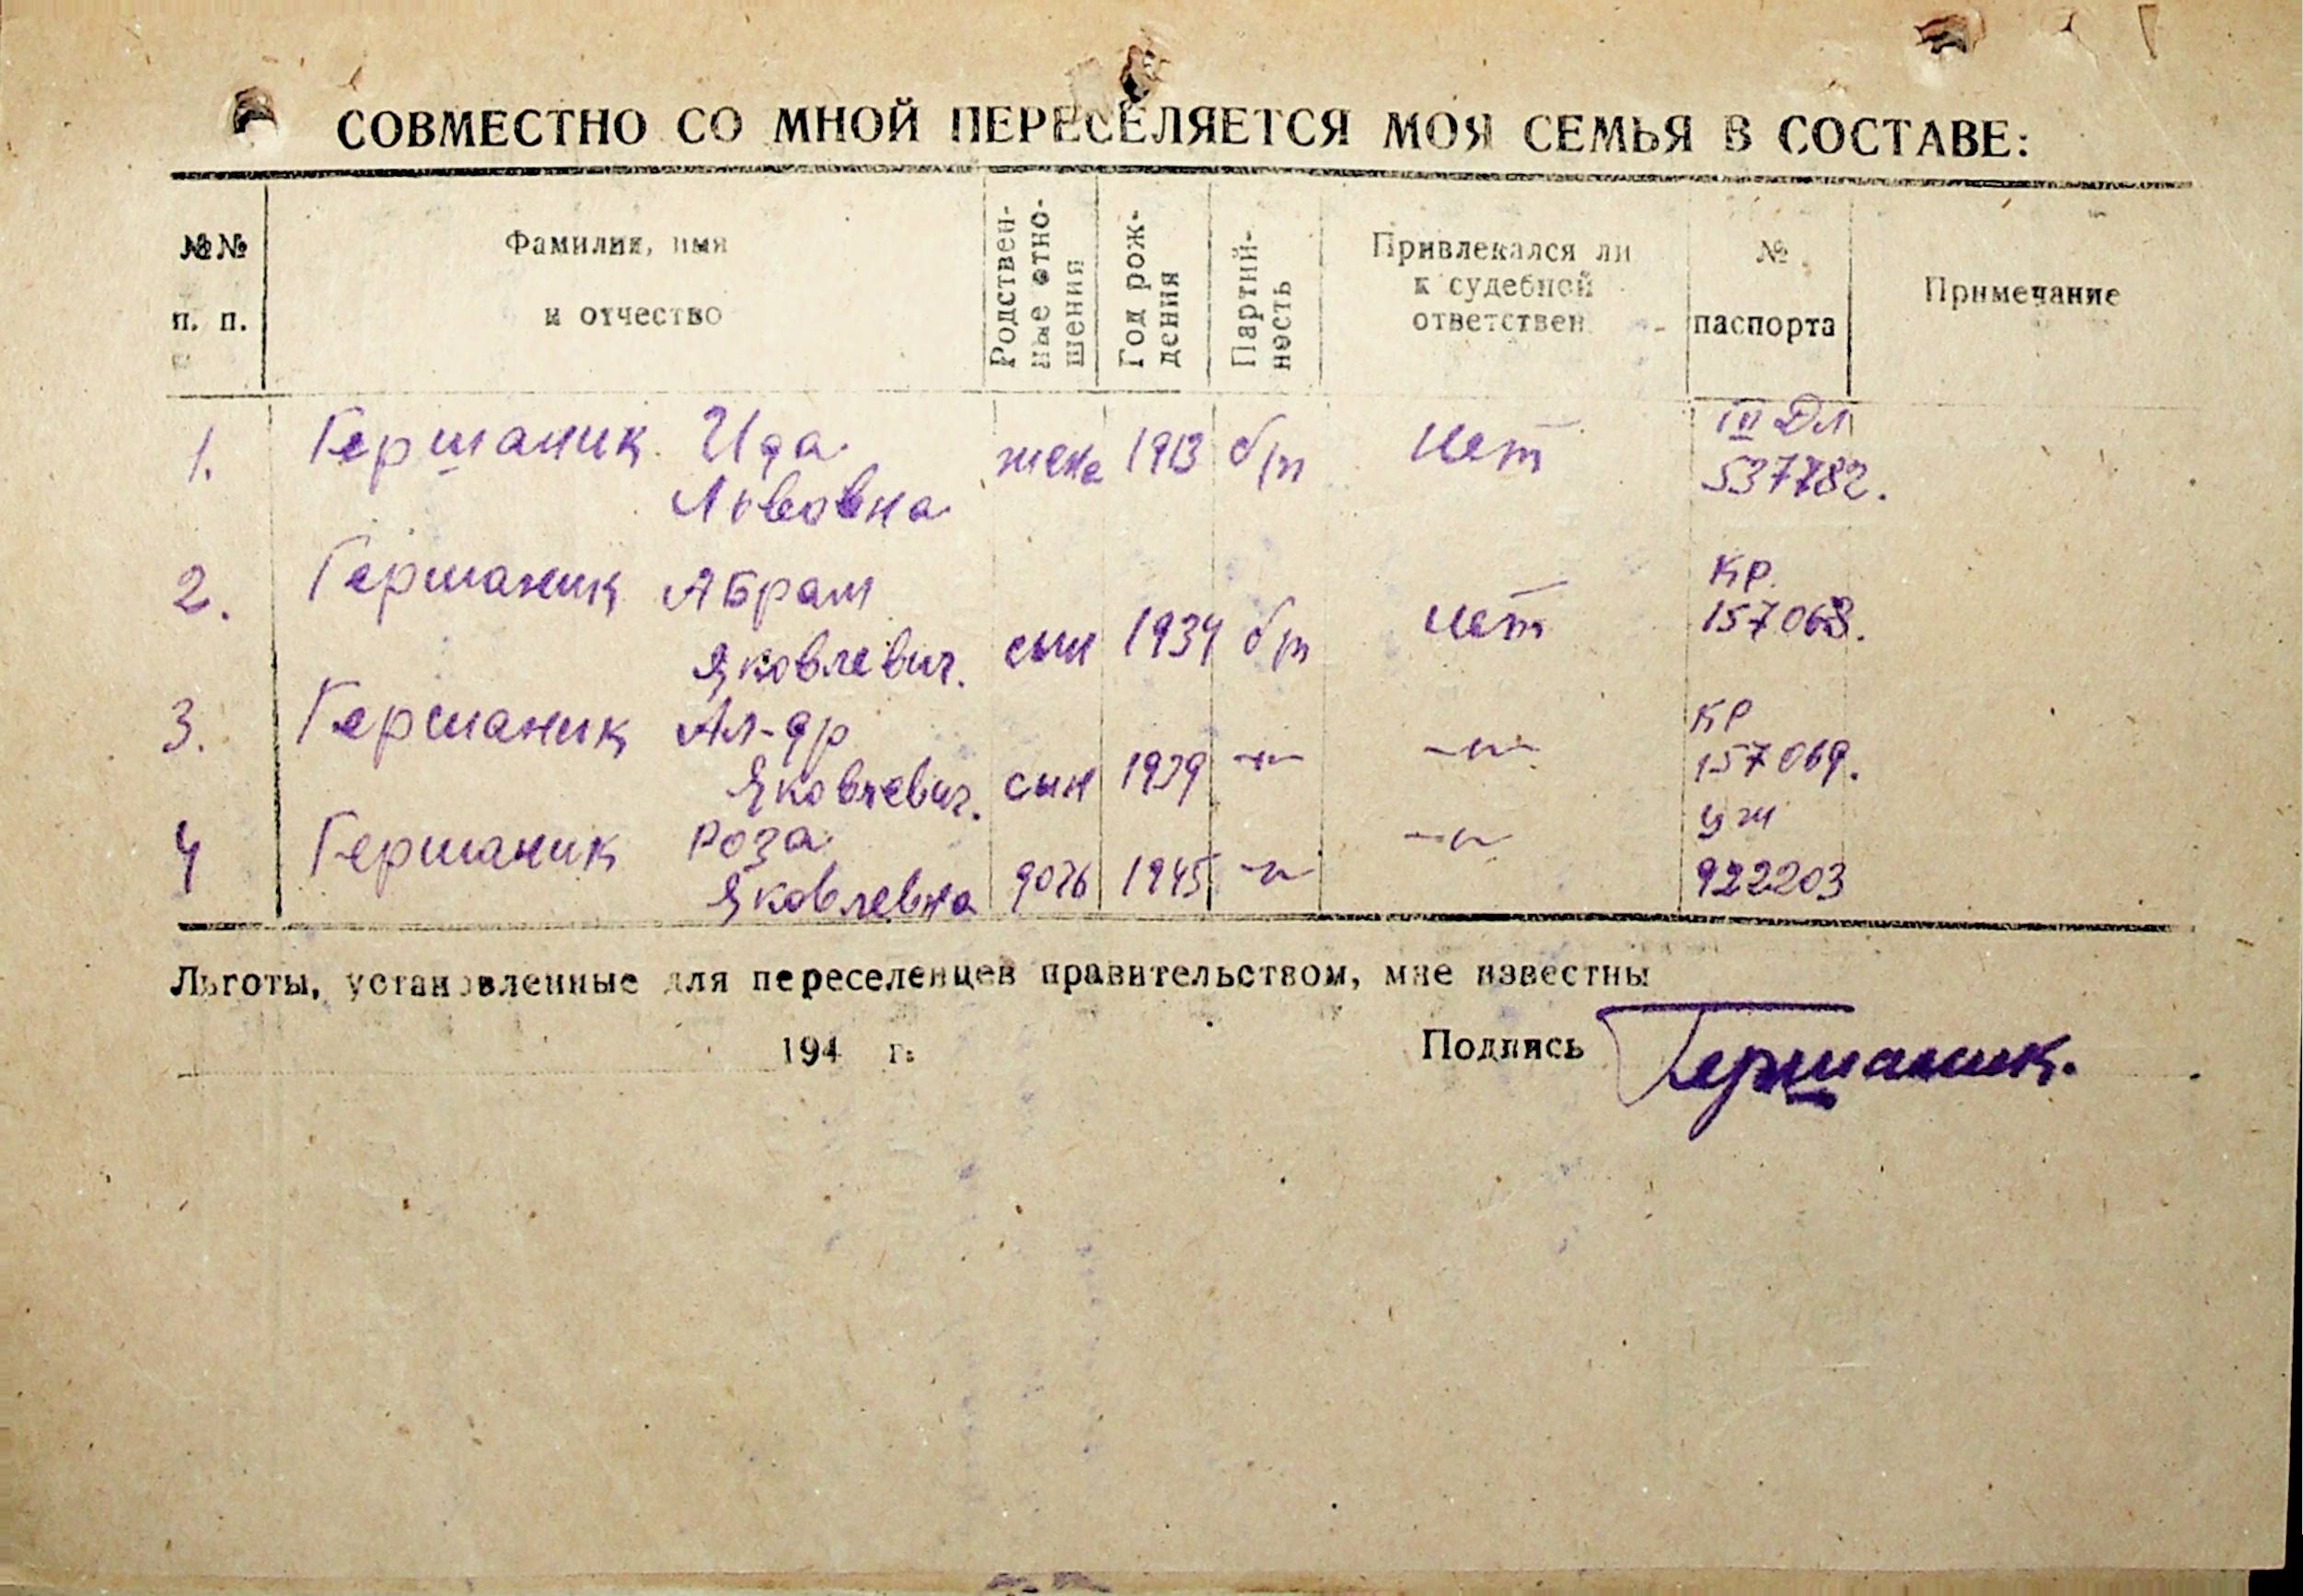 СОВМЕСТНО СО МНОЙ ПЕРЕСЕЛЯЕТСЯ МОЯ СЕМЬЯ В СОСТАВЕ:
№№ п. п.
Фамилия, имя и отчество
Родствен-ные отно-шения
Год рож-дения
Партий-ность
Привлекался ли к судебной ответствен
№ паспорта
Примечание
1. Гершаник Ида жена 1913 б/п нет III ДЛ
Львовна 537782.
2. Гершаник Абрам КР.
Яковлевич. сын 1934 б/п нет 157068.
3. Гершаник Ал-др КР
Яковлевич. сын 1939 -"- -"- 157069.
4 Гершаник Роза -"- УЖ
Яковлевна дочь 1945 -"- 922203
Льготы, установленные для переселенцев правительством, мне известны
194 г.
Подпись Гершаник.